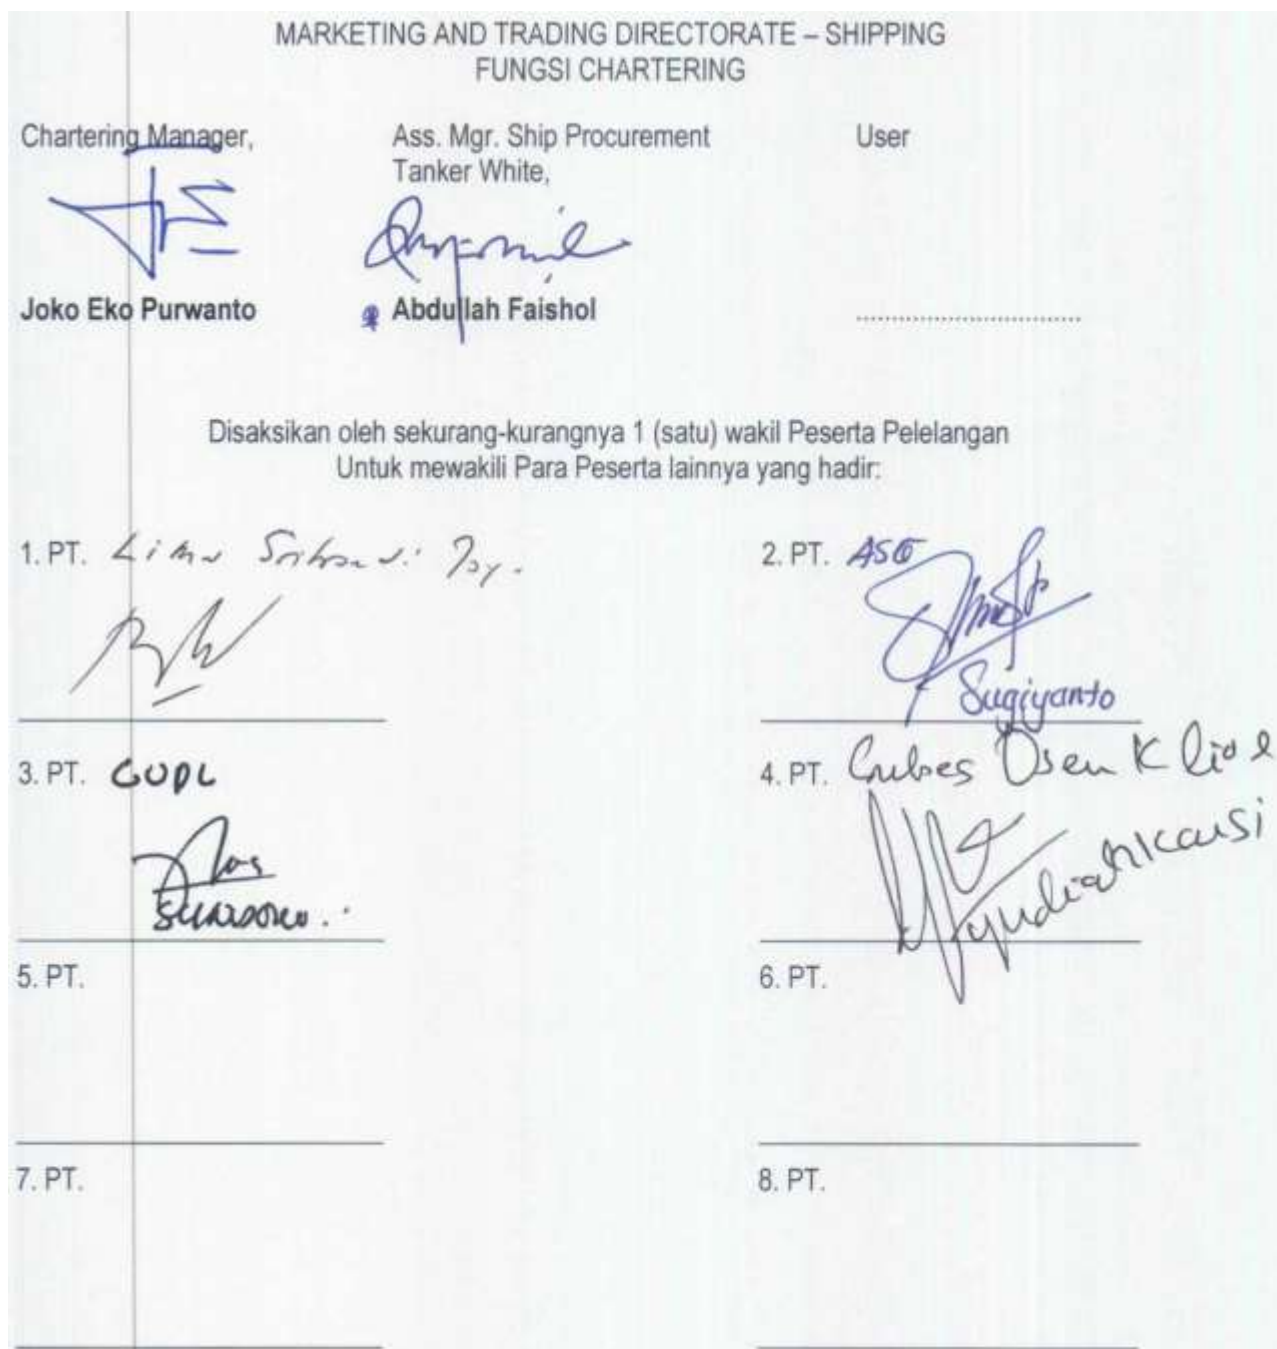 MARKETING AND TRADING DIRECTORATE – SHIPPING
FUNGSI CHARTERING
Chartering Manager,
Ass. Mgr. Ship Procurement
Tanker White,
User
Joko Eko Purwanto
Abdullah Faishol
................................
Disaksikan oleh sekurang-kurangnya 1 (satu) wakil Peserta Pelelangan
Untuk mewakili Para Peserta lainnya yang hadir:
1. PT. Lima
2. PT.
Sugiyanto
3. PT. GUPL
4. PT.
5. PT.
6. PT.
7. PT.
8. PT.